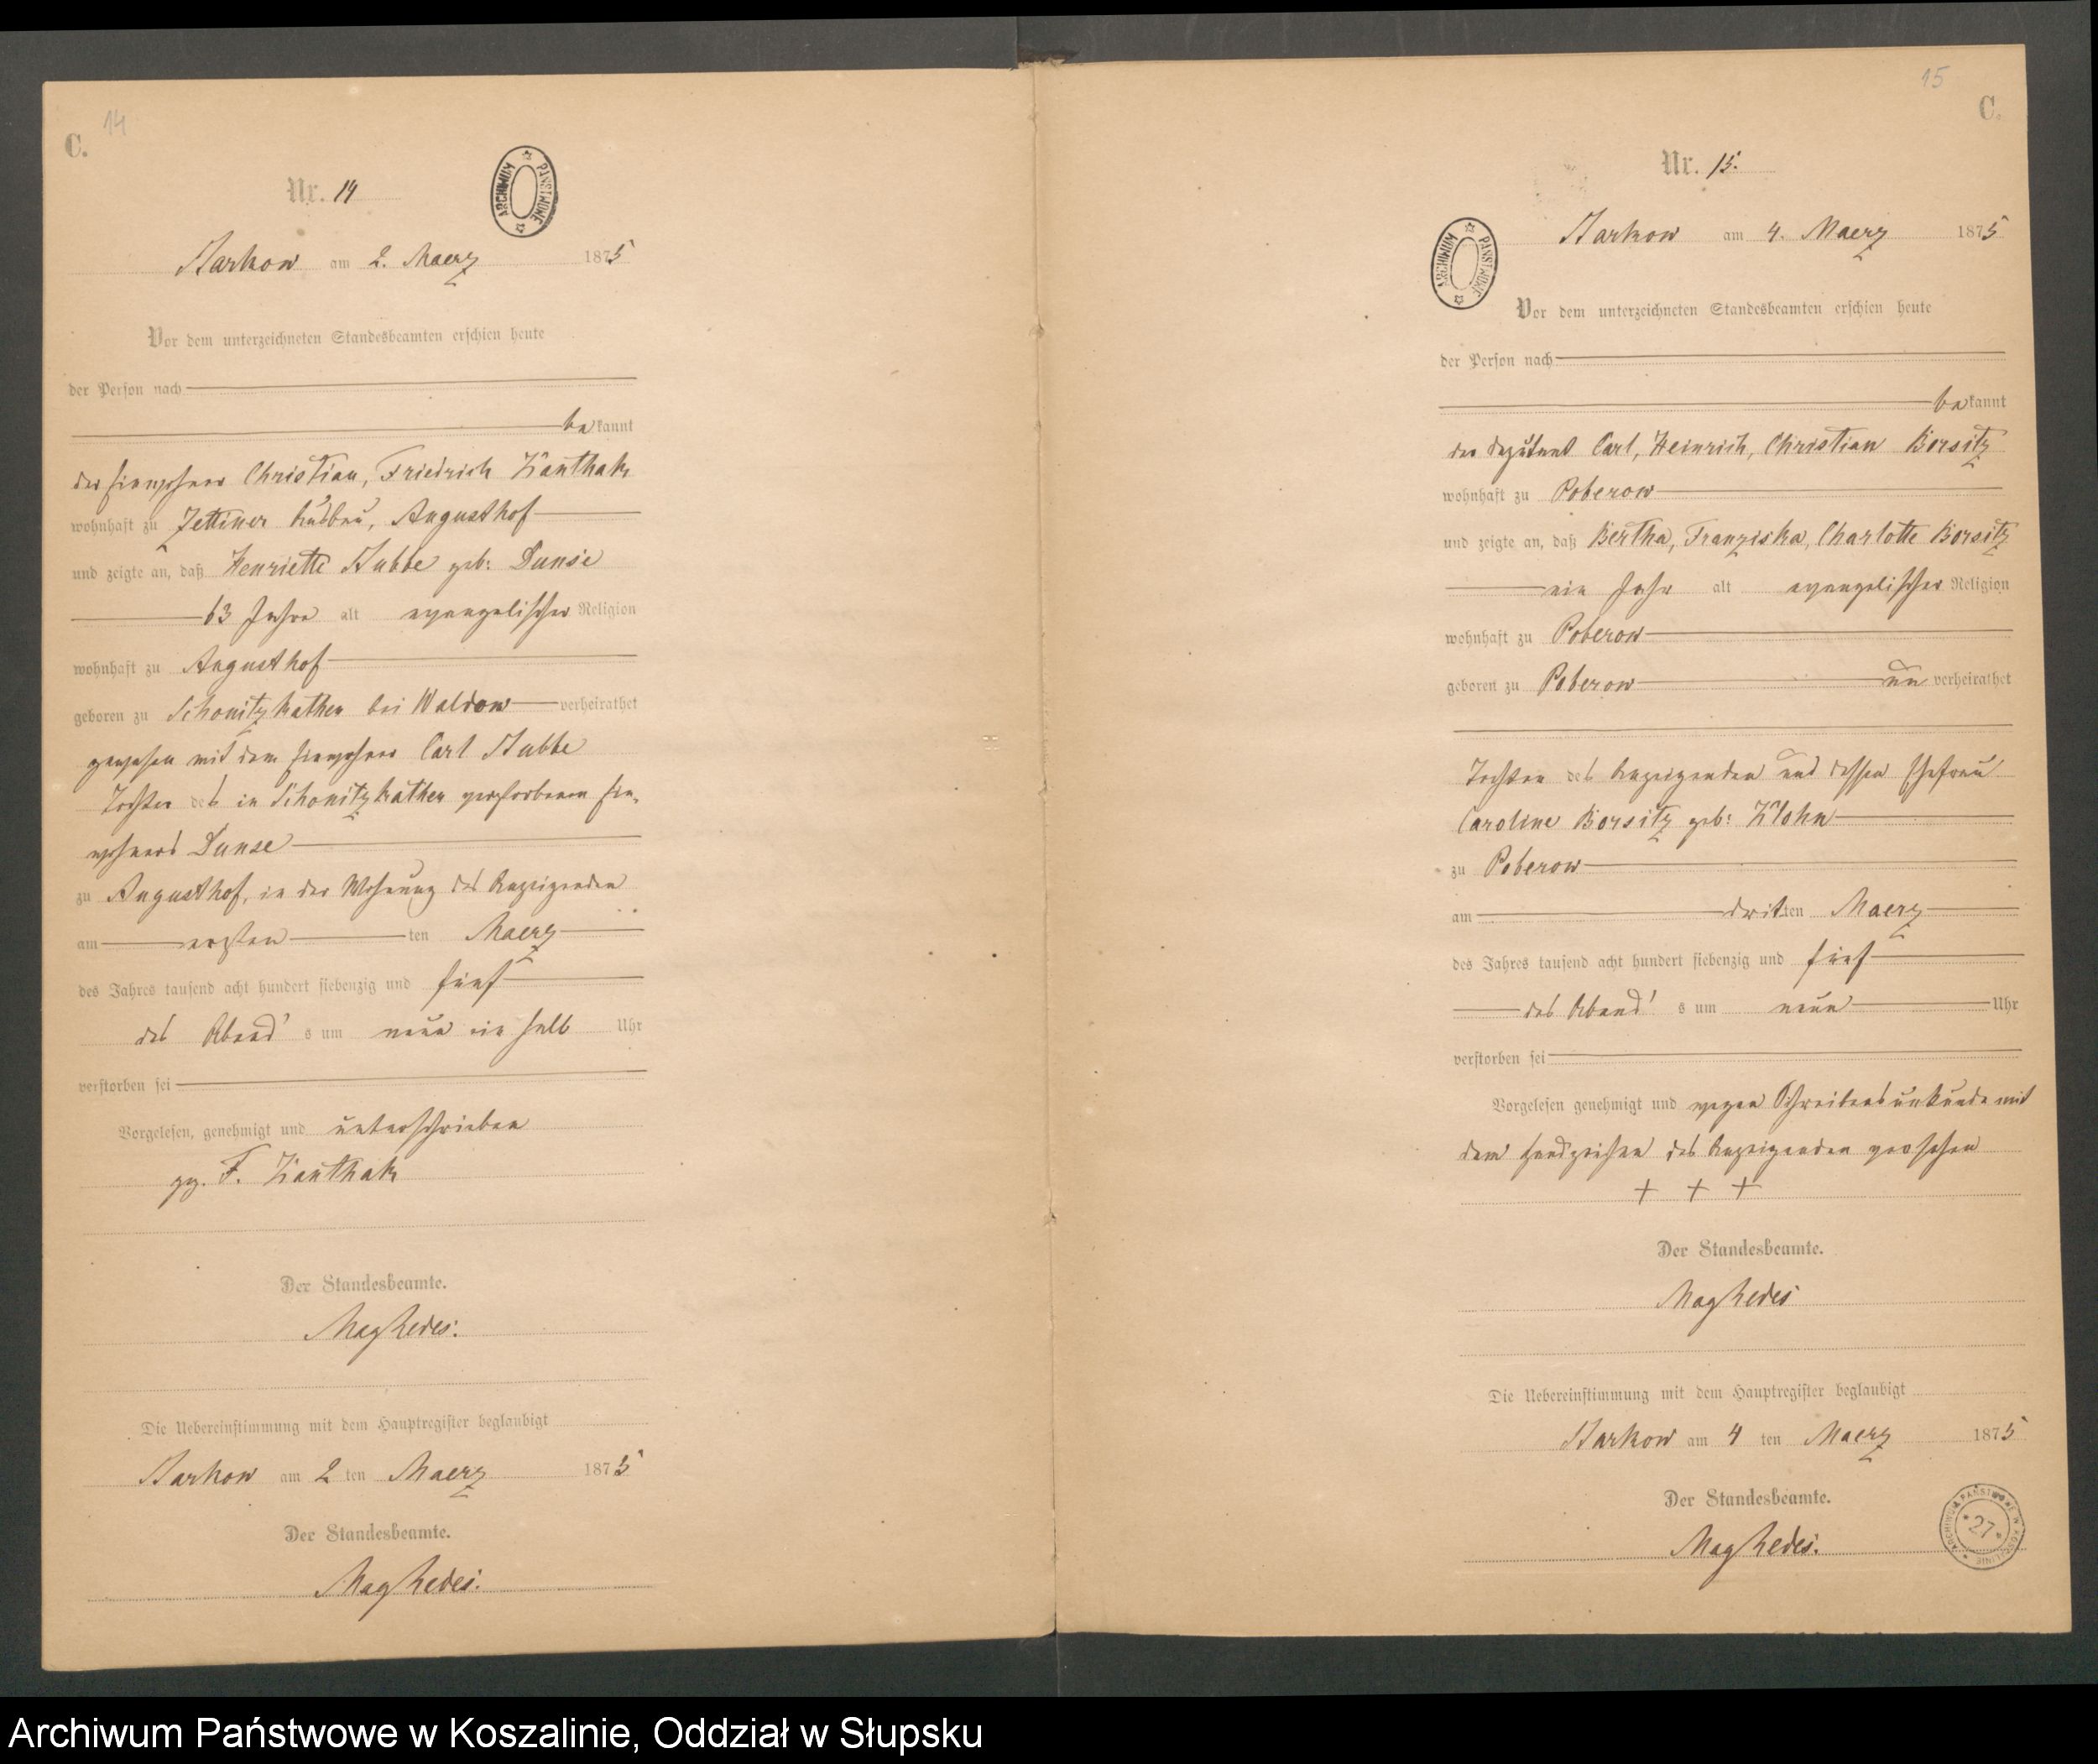 14
C.
Nr. 14
ARCHIWUM PAŃSTWOWE
Starkow am 2. Maerz 1875
Vor dem unterzeichneten Standesbeamten erschien heute
der Person nach
bekannt
der Einwohner Christian, Friedrich Kauthak
wohnhaft zu Zettiner Ausbau, Augusthof
und zeigte an, daß Henriette Stubbe geb: Dunse
63 Jahre alt evangelischer Religion
wohnhaft zu Augusthof
geboren zu Schonitzkathen bei Waldow verheirathet
gewesen mit dem Einwohner Carl Stubbe
Tochter des in Schonitzkathen verstorbenen Ein-
wohners Dunse
zu Augusthof, in der Wohnung des Anzeigenden
am ersten ten Maerz
des Jahres tausend acht hundert siebenzig und fünf
des Abend's um neun ein halb Uhr
verstorben sei
Vorgelesen, genehmigt und unterschrieben
gez. F. Kauthak
Der Standesbeamte.
Die Uebereinstimmung mit dem Hauptregister beglaubigt
Starkow am 2 ten Maerz 1875
Der Standesbeamte.
15
C.
Nr. 15.
ARCHIWUM PAŃSTWOWE
Starkow am 4. Maerz 1875
Vor dem unterzeichneten Standesbeamten erschien heute
der Person nach
bekannt
der Deputant Carl, Heinrich, Christian Borsitz
wohnhaft zu Poberow
und zeigte an, daß Bertha, Franziska, Charlotte Borsitz
ein Jahr alt evangelischer Religion
wohnhaft zu Poberow
geboren zu Poberow un verheirathet
Tochter des Anzeigenden und dessen Ehefrau
Caroline Borsitz geb: Klohn
zu Poberow
am dritten Maerz
des Jahres tausend acht hundert siebenzig und fünf
des Abend's um neun Uhr
verstorben sei
Vorgelesen genehmigt und wegen Schreibensunkunde mit
dem Handzeichen des Anzeigenden versehen
+ + +
Der Standesbeamte.
Die Uebereinstimmung mit dem Hauptregister beglaubigt
Starkow am 4 ten Maerz 1875
Der Standesbeamte.
ARCHIWUM PAŃSTWOWE W KOSZALINIE
27
Archiwum Państwowe w Koszalinie, Oddział w Słupsku